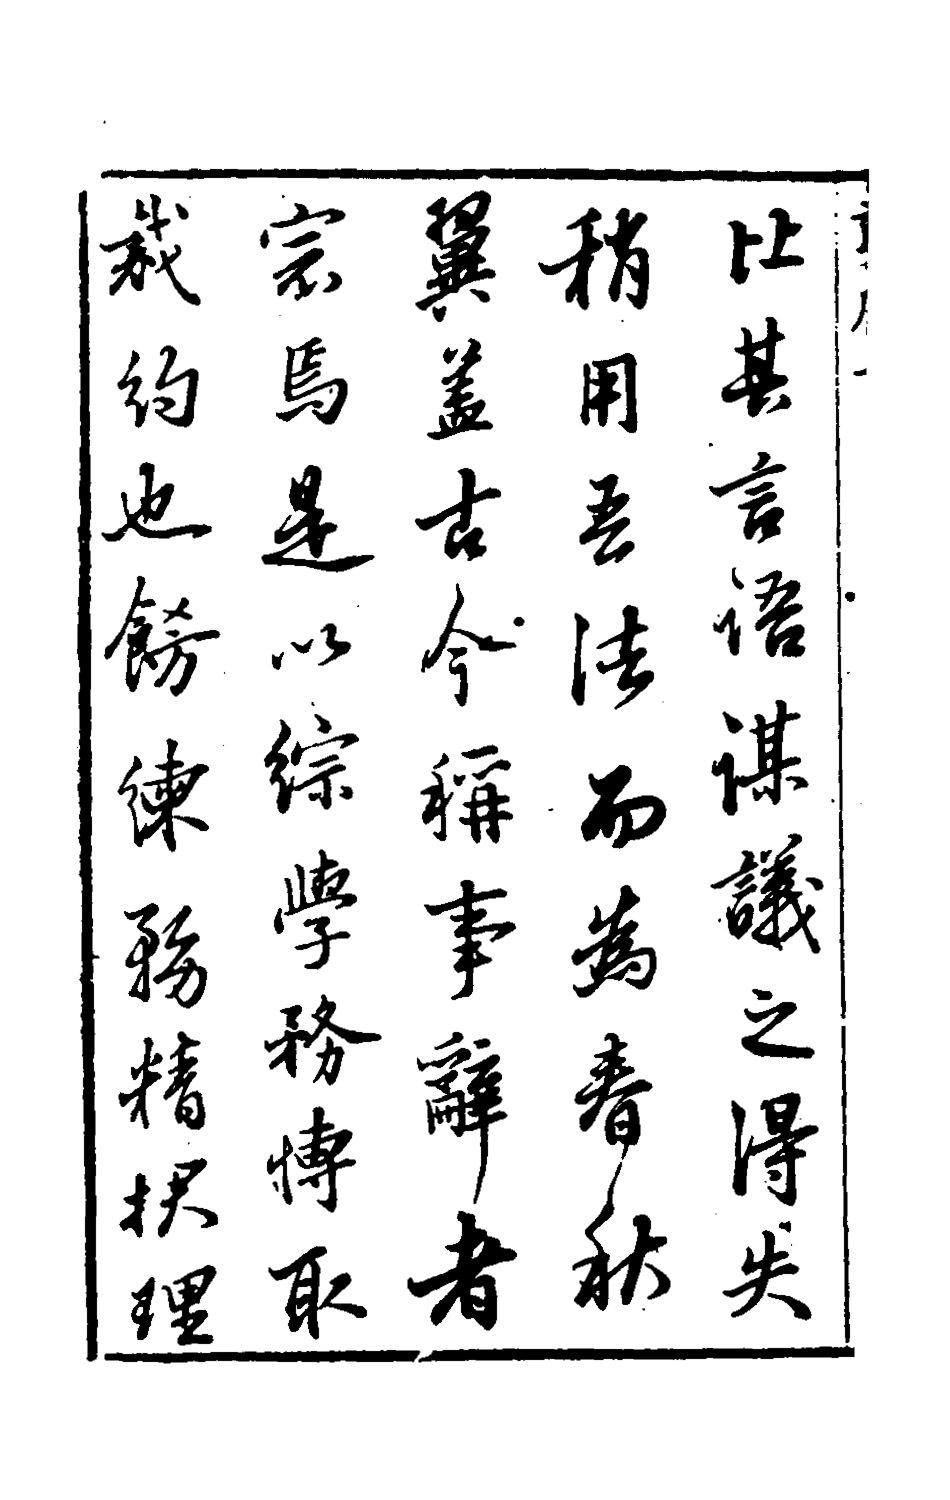 比其言語謀議之得失
稍用吾法而為春秋
翼盖古今稱事辭者
宗焉是以綜學務愽取
裁約也飭練務精捃理